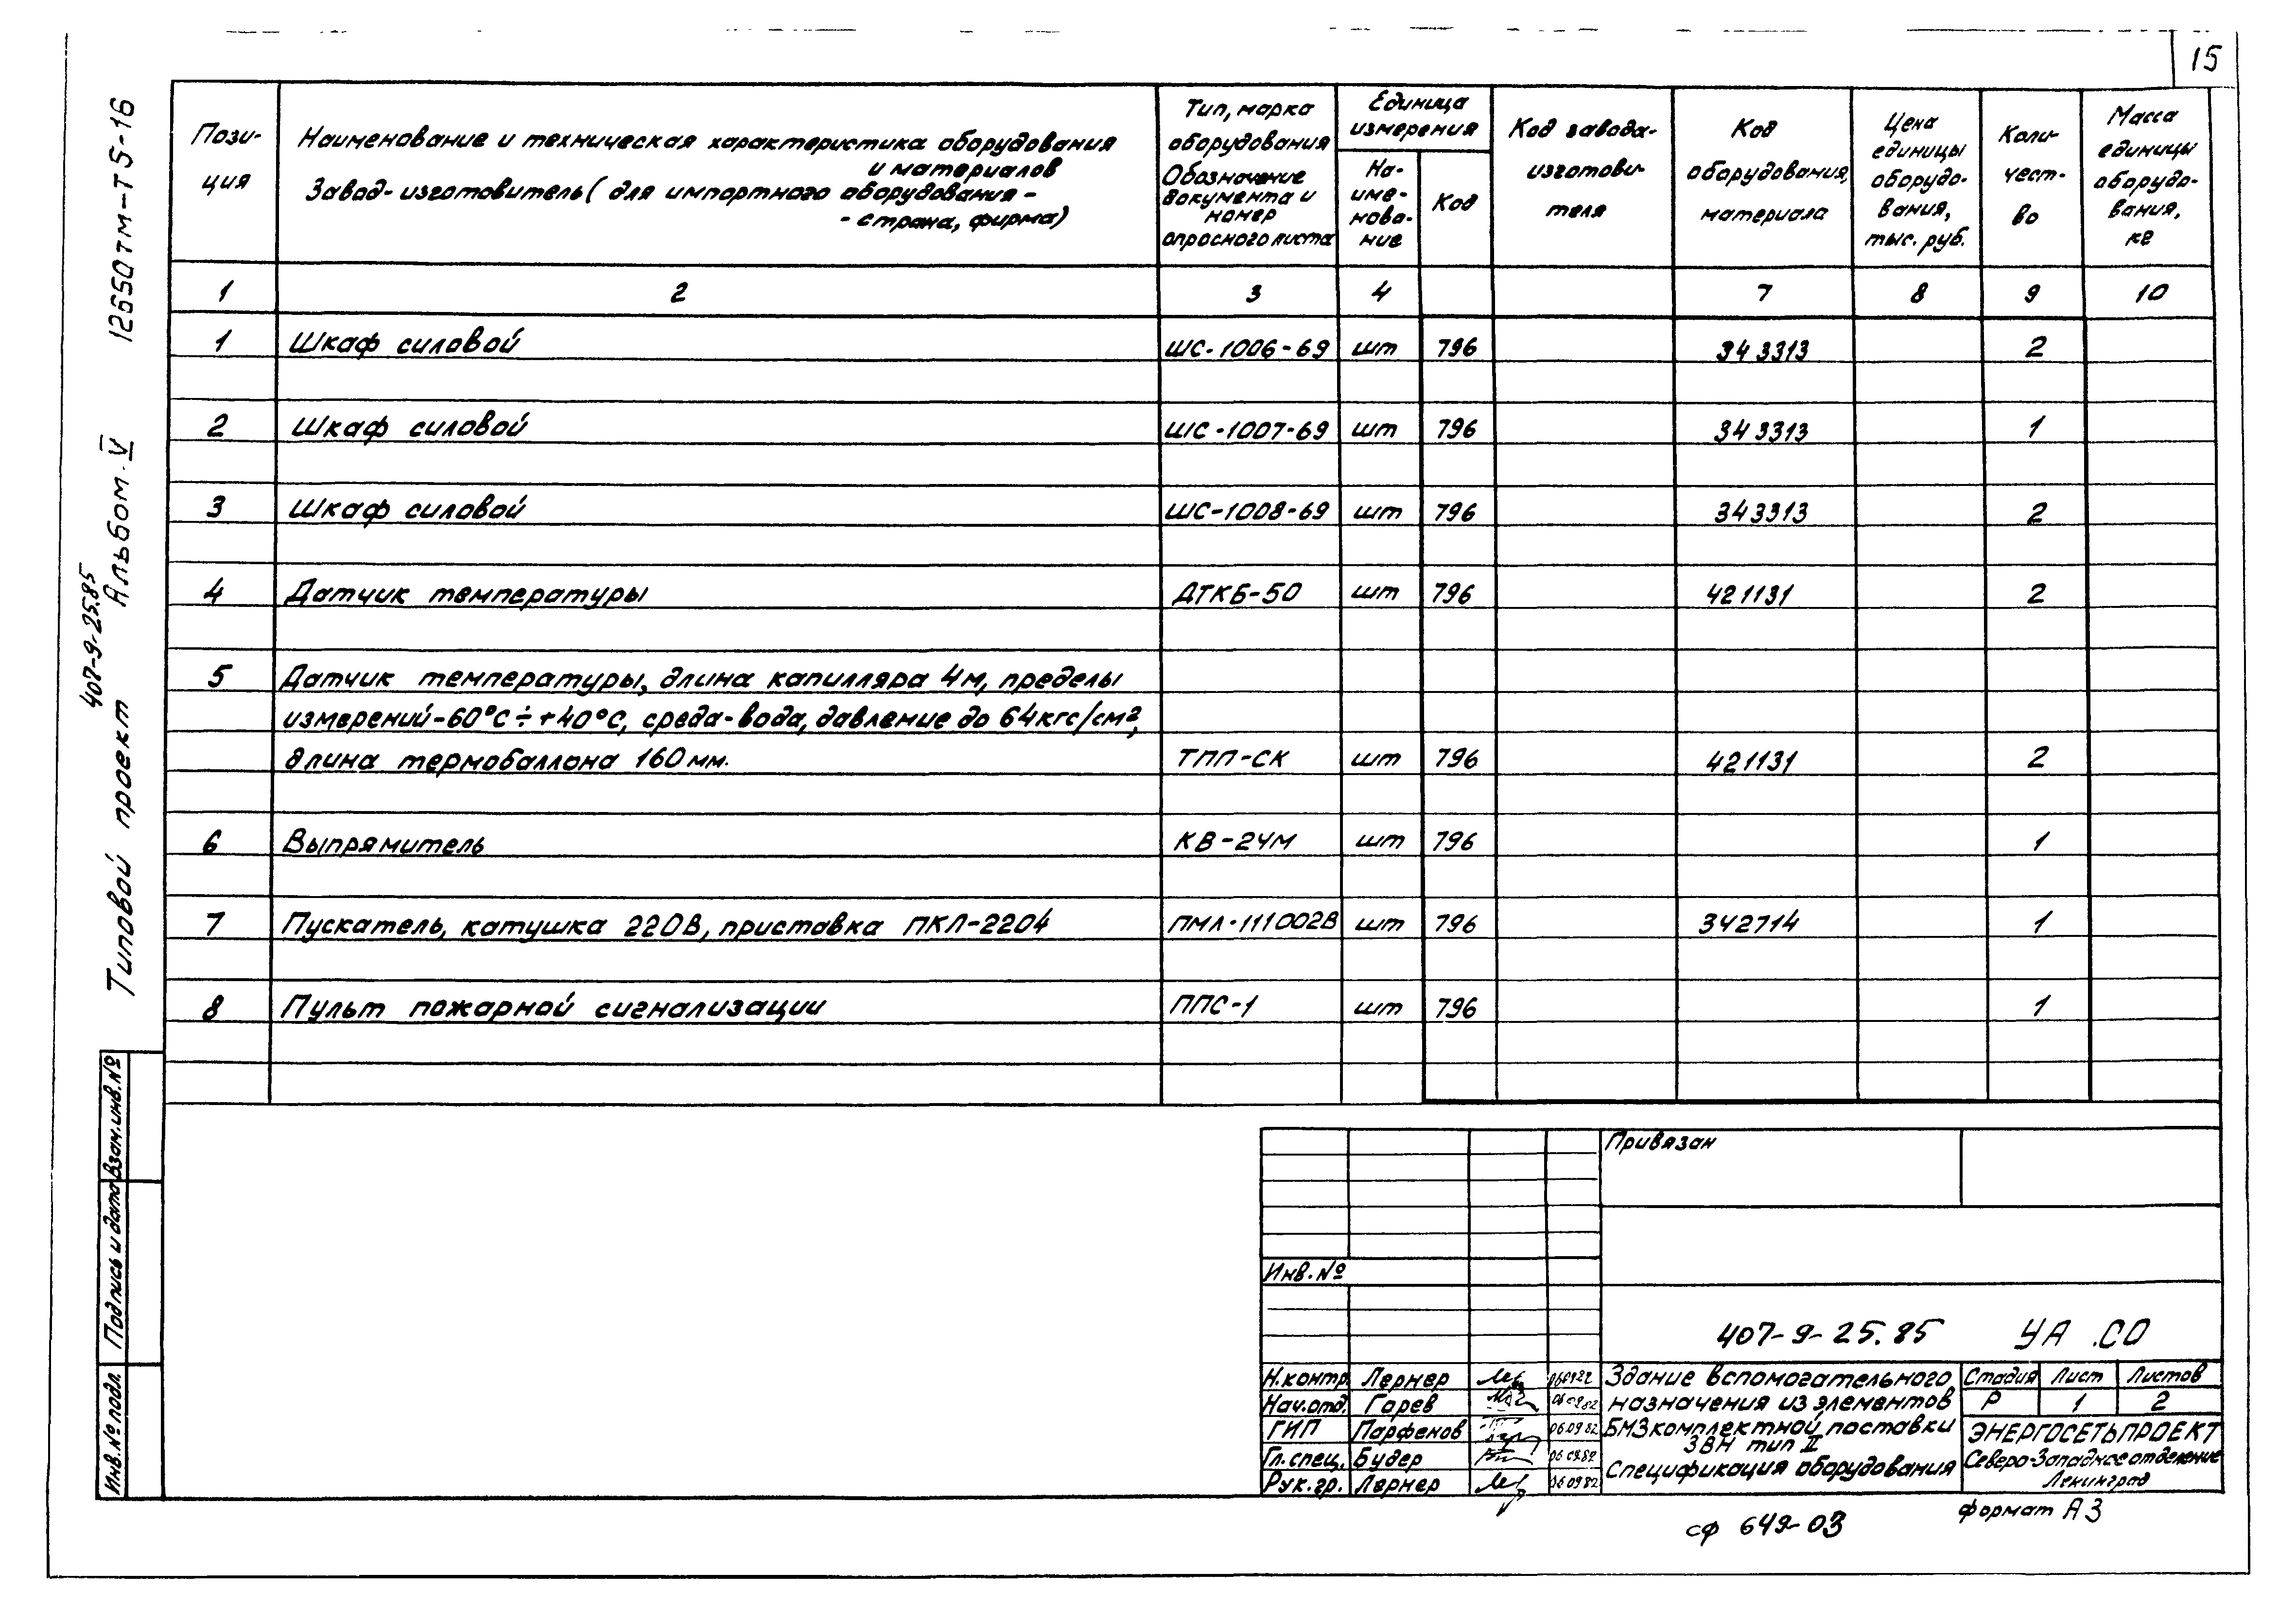 15
Пози-
ция
Наименование и техническая характеристика оборудования
и материалов
Завод-изготовитель (для импортного оборудования -
- страна, фирма)
Тип, марка
оборудования
Обозначение
документа и
номер
опросного листа
Единица
измерения
На-
име-
нова-
ние
Код
Код завода-
изготови-
теля
Код
оборудования,
материала
Цена
единицы
оборудо-
вания,
тыс. руб.
Коли-
чест-
во
Масса
единицы
оборудо-
вания,
кг
1 2 3 4 7 8 9 10
1 Шкаф силовой ШС-1006-69 шт 796 343313 2
2 Шкаф силовой ШС-1007-69 шт 796 343313 1
3 Шкаф силовой ШС-1008-69 шт 796 343313 2
4 Датчик температуры ДТКБ-50 шт 796 421131 2
5 Датчик температуры, длина капилляра 4м, пределы
измерений -60°С ÷ +40°С, среда-вода, давление до 64кгс/см²,
длина термобаллона 160мм. ТПП-СК шт 796 421131 2
6 Выпрямитель КВ-24М шт 796 1
7 Пускатель, катушка 220В, приставка ПКЛ-2204 ПМЛ-111002В шт 796 342714 1
8 Пульт пожарной сигнализации ППС-1 шт 796 1
12650тм-т5-16
Альбом V
407-9-25.85
Типовой проект
Взам.инв.№
Подпись и дата
Инв.№ подл.
Привязан
Инв.№
407-9-25.85 УА .СО
Н.контр. Лернер 060982
Нач.отд. Горев 060982
ГИП Парфенов 06.0982
Гл.спец. Будер 060982
Рук.гр. Лернер 060982
Здание вспомогательного
назначения из элементов
БМЗ комплектной поставки
ЗВН тип II
Спецификация оборудования
Стадия Лист Листов
Р 1 2
ЭНЕРГОСЕТЬПРОЕКТ
Северо-Западное отделение
Ленинград
формат А3
сф 649-03